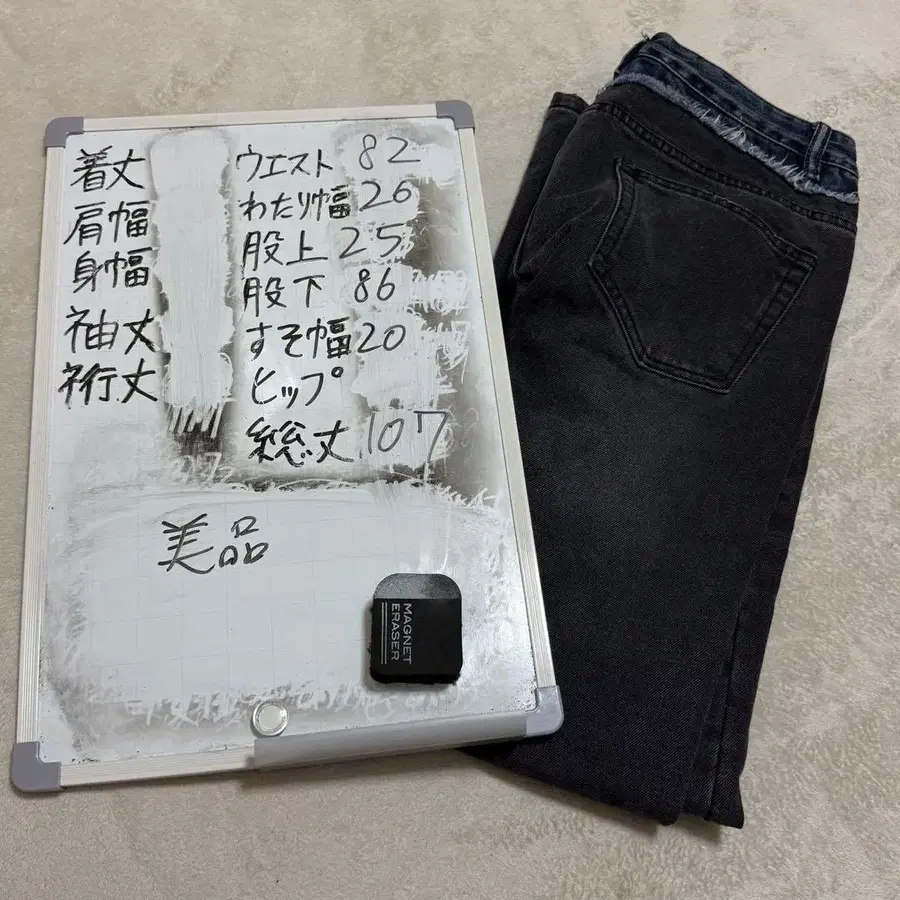 着丈
肩幅
身幅
袖丈
裄丈
ウエスト 82
わたり幅 26
股上 25
股下 86
すそ幅 20
ヒップ
総丈 107
美品
MAGNET
ERASER